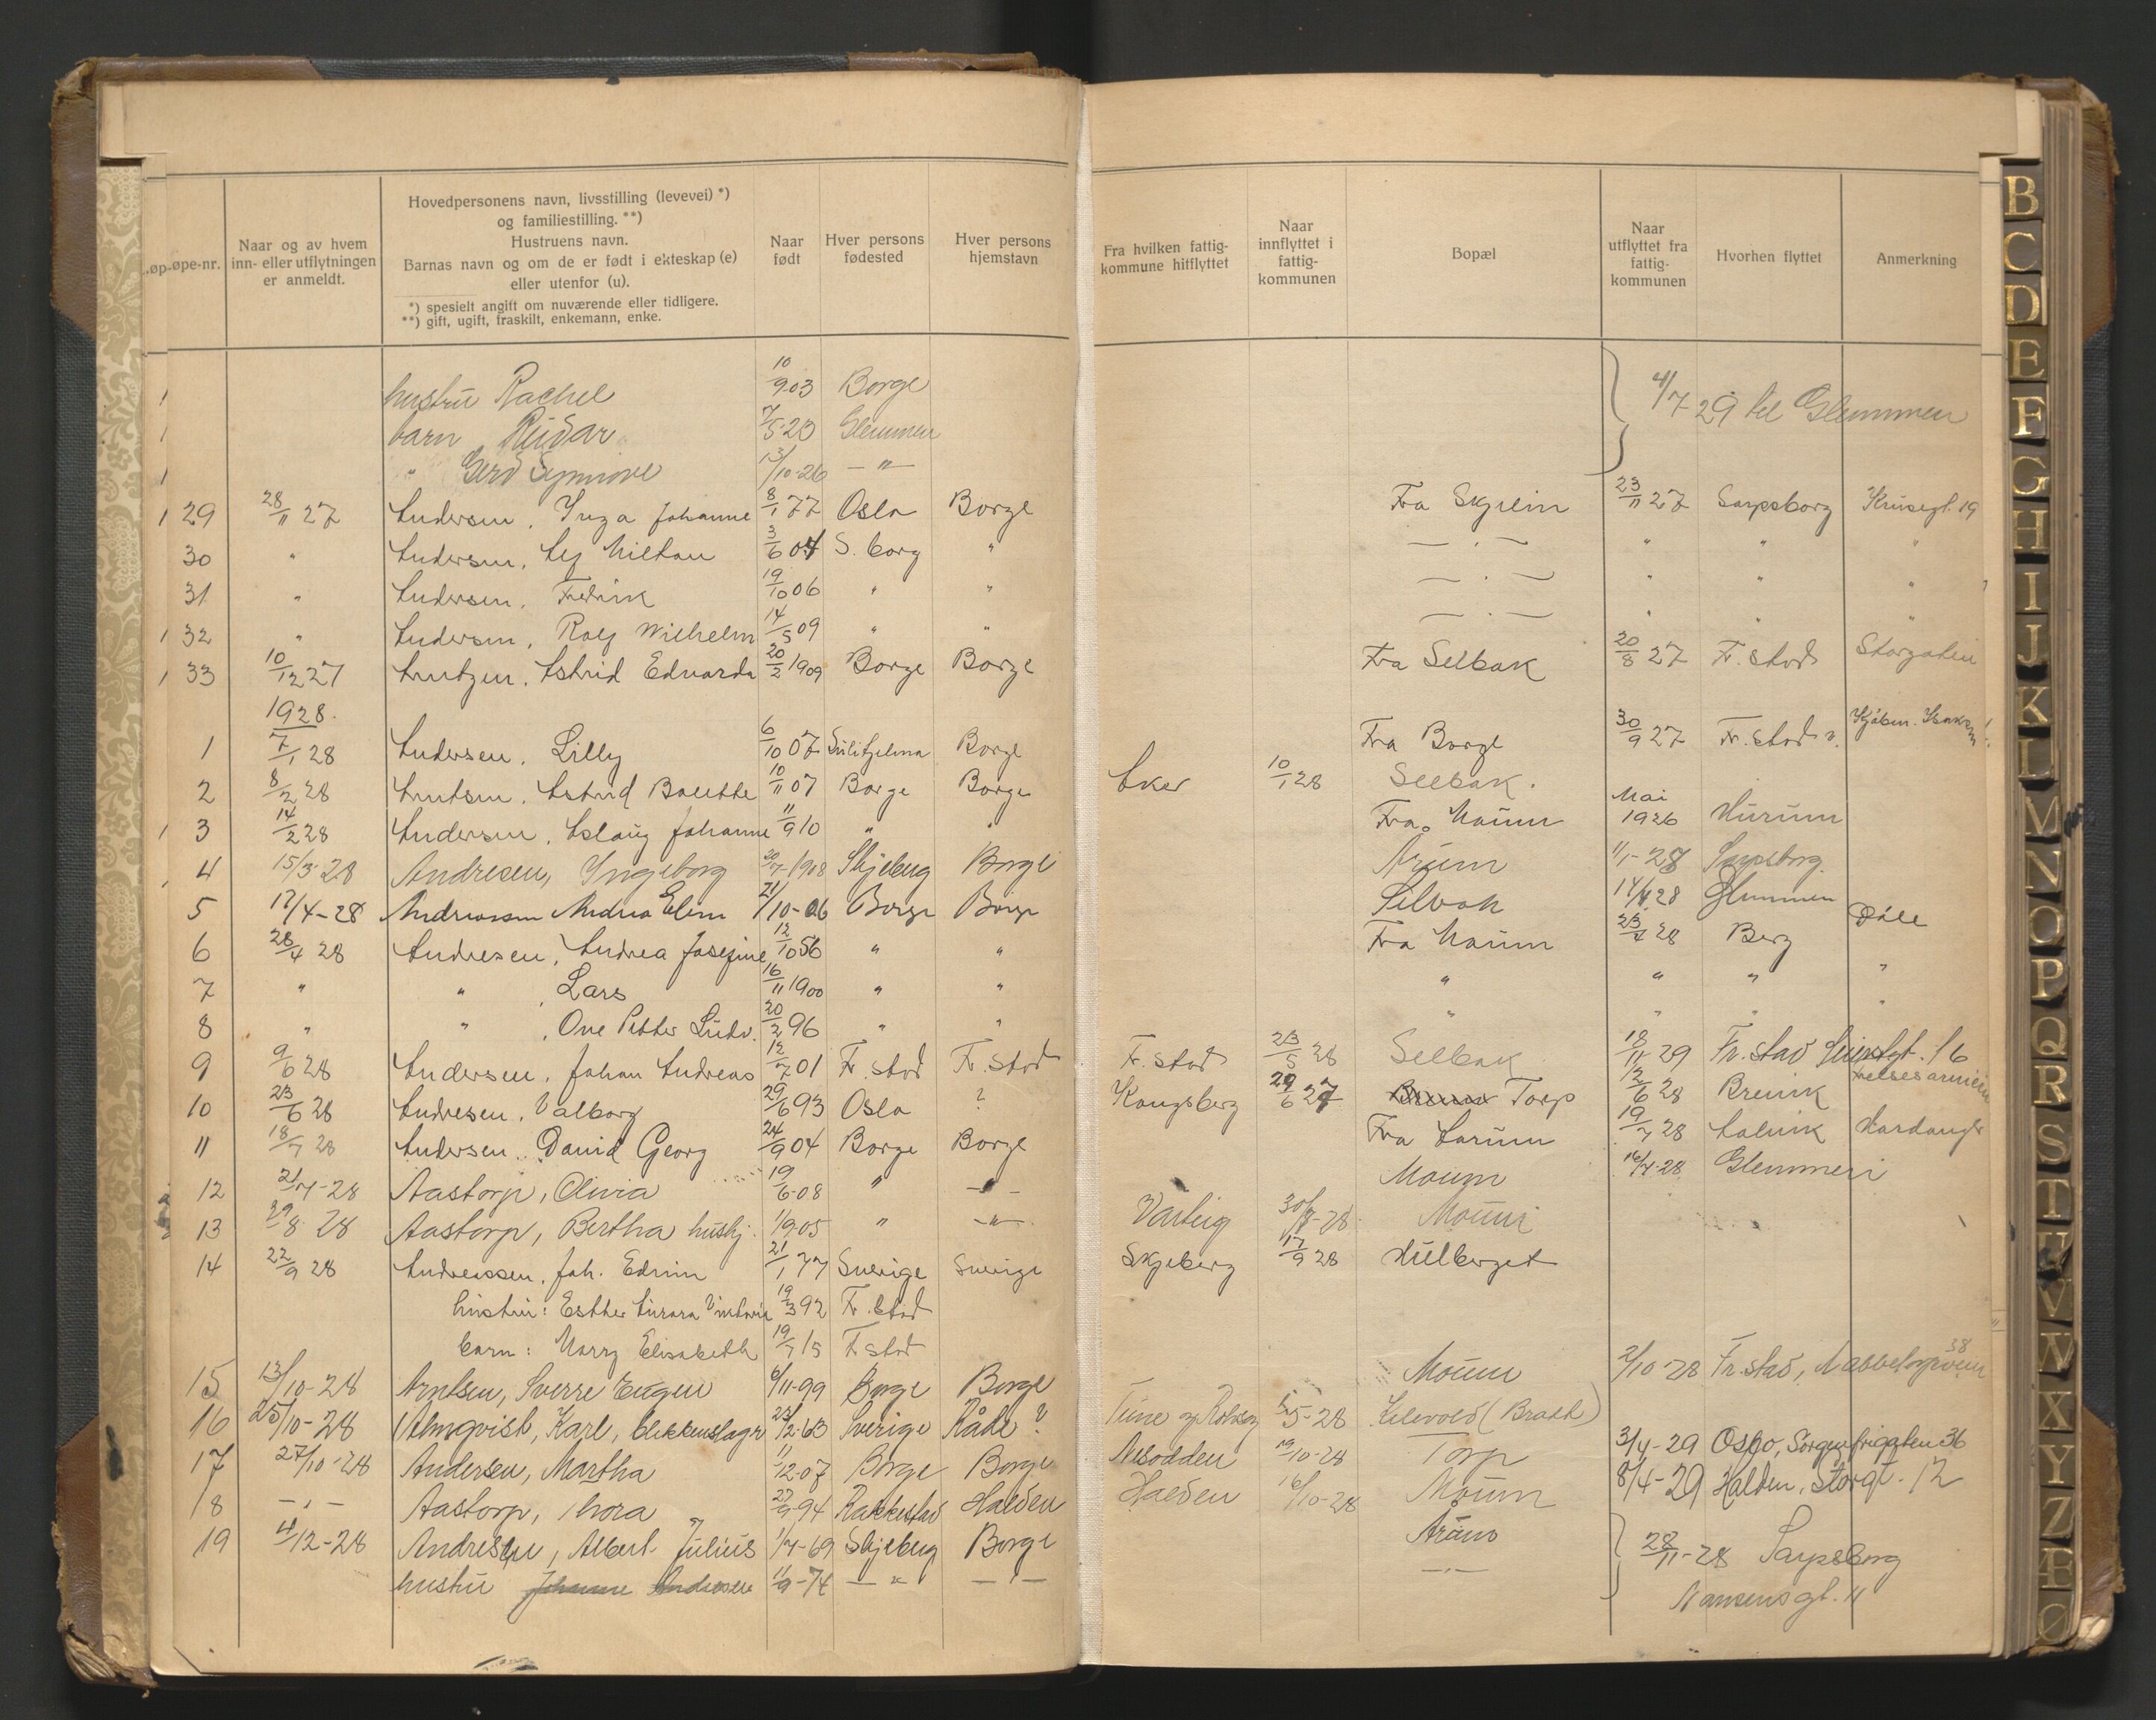 Løpe-nr.
Naar og av hvem inn- eller utflytningen er anmeldt.
Hovedpersonens navn, livsstilling (levevei) *) og familiestilling. **)
Hustruens navn.
Barnas navn og om de er født i ekteskap (e) eller utenfor (u).
*) spesielt angitt om nuværende eller tidligere.
**) gift, ugift, fraskilt, enkemann, enke.
Naar født
Hver persons fødested
Hver persons hjemstavn
Fra hvilken fattigkommune hitflyttet
Naar innflyttet i fattigkommunen
Bopæl
Naar utflyttet fra fattigkommunen
Hvorhen flyttet
Anmerkning
hustru Rachel 10/9 03 Borge 4/7 29 til Glemmen
barn Reidar 7/5-23 Glemmen
" Gerd Synnøve 13/10-26 - " -
29 28/11 27 Andersen, Inga Johanne 8/1 77 Oslo Borge Fra 23/11 27 Sarpsborg Krusegt. 19
30 " Andersen, 3/6 04 S. borg " - . - " " "
31 " Andersen, Fredrik 19/10 06 " " - . - " " "
32 " Andersen, Rolf Wilhelm 14/5 09 " " - . - " " "
33 10/12 27 Arntzen, Astrid Edvarda 20/2 1909 Borge Borge Fra Selbak 20/8 27 Fr. stad Storgaten
1928.
1 7/1 28 Andersen, Lilly 6/10 07 Sulitjelma Borge Fra Borge 30/9 27 Fr. stad v.
2 8/2 28 Arntsen, Astrid Bolette 10/11 07 Borge Borge Aker 10/1 28 Selbak.
3 14/2 28 Andersen, Aslaug Johanne 11/9 10 " " Fra Moum Mai 1926 Hurum
4 15/3 28 Andresen, Ingeborg 20/7-1908 Skjeberg Borge Årum 1/1-28 Sarpsborg.
5 12/4-28 Andreassen Andrea Elise 21/10-06 Borge Borge Selbak 14/4 28 Glemmen
6 28/4 28 Andresen, Andrea Josefine 12/10 56 " " Fra Moum 23/4 28 Berg Dale
7 " " , Lars 16/11 1900 " " " " " "
8 " " , Ove Petter Ludv. 20/2 96 " " " " " "
9 9/6 28 Andersen, Johan Andreas 12/7 01 Fr. stad Fr. stad Fr. stad 23/5 28 Selbak 18/11 29 Fr. stad 16
10 23/6 28 Andresen, Valborg 29/6 93 Oslo ? Kongsberg 29/6 27 Torp 12/6 28 Brevik Frelsesarmeen
11 18/7 28 Andersen, David Georg 24/9 04 Borge Borge Fra Larum 19/7 28 Aalvik Hardanger
12 21/4-28 Aastorp, Olivia 19/6-08 " - " - Moum 16/4-28 Glemmen
13 29/8 28 Aastorp, Bertha hushj. 1/9-05 " - " - Varteig 30/8-28 Moum
14 22/9 28 Andreassen, Joh. Edvin 21/1 77 Sverige Sverige Skjeberg 17/9 28 Hulberget
hustru: Esther Aurora 19/3 92 Fr. stad
barn: Harry Elisabeth 19/7 15 Fr stad
15 13/10-28 Arntsen, Sverre Eugen 6/11-99 Borge Borge Moum 2/10-28 Fr. stad, 38
16 25/10-28 Almqvist, Karl, blikkenslager 23/12-63 Sverige Råde ? Tune og Rolvsøy 1/5-28 (Brath)
17 27/10-28 Andersen, Martha 11/12-07 Borge Borge Nesodden 19/10-28 Torp 3/4-29 Oslo, Sorgenfrigaten 36
18 - " - Aastorp, Thora 27/9-94 Rakkestad Halden Halden 16/10-28 Moum 8/4-29 Halden, Storgt. 12
19 4/12-28 Andresen, Albert Julius 1/4-69 Skjeberg Borge Årum 28/11-28 Sarpsborg
hustru Johanne Andresen 11/9-74 - " - - " - - " - Nansensgt. 11
B
C
D
E
F
G
H
I
J
K
L
M
N
O
P
Q
R
S
T
U
V
W
X
Y
Z
Æ
Ø